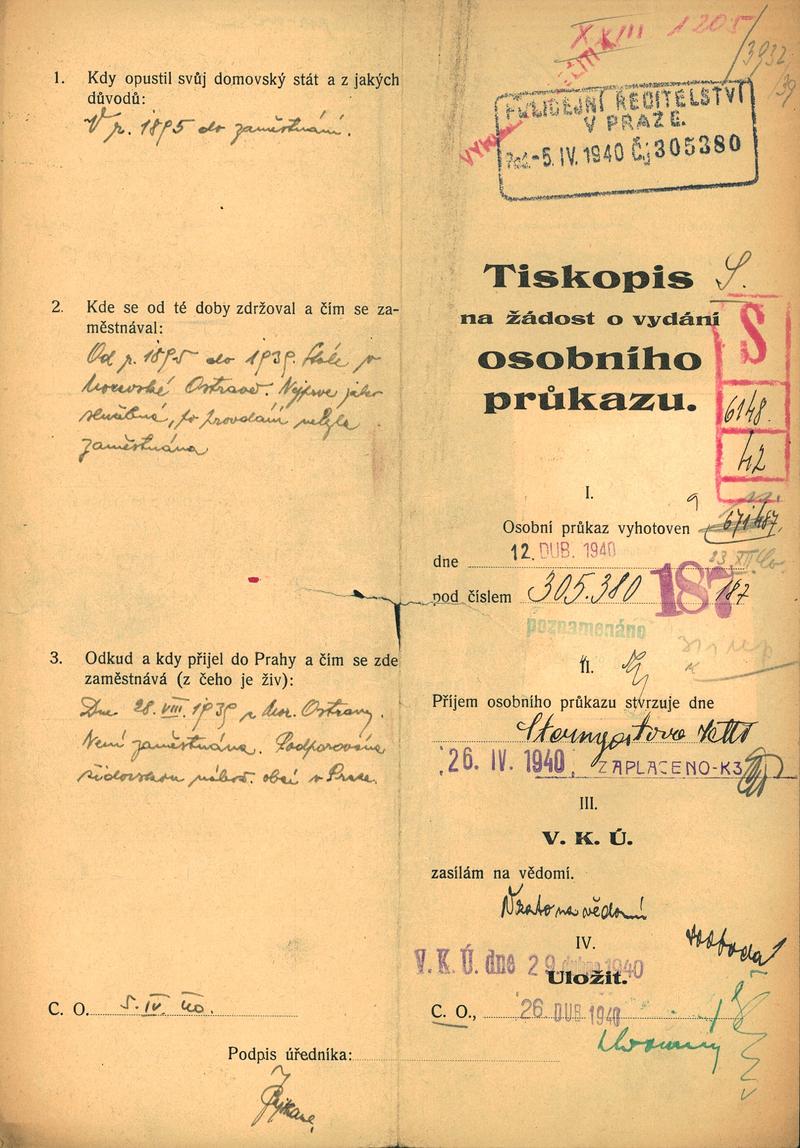 1. Kdy opustil svůj domovský stát a z jakých
důvodů:
V r. 1895 do zaměstnání.
2. Kde se od té doby zdržoval a čím se za-
městnával:
Od r. 1895 do 1939 stále v
Moravské Ostravě. Nejprve jako
služebná, po provdání nebyla
zaměstnána
3. Odkud a kdy přijel do Prahy a čím se zde
zaměstnává (z čeho je živ):
Dne 28. VIII. 1939 z Mor. Ostravy.
Není zaměstnána. Podporována
židovskou nábož. obcí v Praze.
C. O. 5. IV. 40.
Podpis úředníka:
XXIII 1205
/3932
/39
POLICEJNÍ ŘEDITELSTVÍ
V PRAZE.
-5. IV. 1940 Čj 305380
Tiskopis S.
na žádost o vydání
osobního
průkazu.
S
6148
42
I.
Osobní průkaz vyhotoven
dne 12. DUB. 1940
pod číslem 305.380 187 187
poznamenáno
II.
Příjem osobního průkazu stvrzuje dne
26. IV. 1940 ZAPLACENO-K3
III.
V. K. Ú.
zasílám na vědomí.
Vzato na vědomí
IV.
Svoboda
V. K. Ú. dne 29. dubna 1940
Uložit.
C. O., 26 DUB 1940